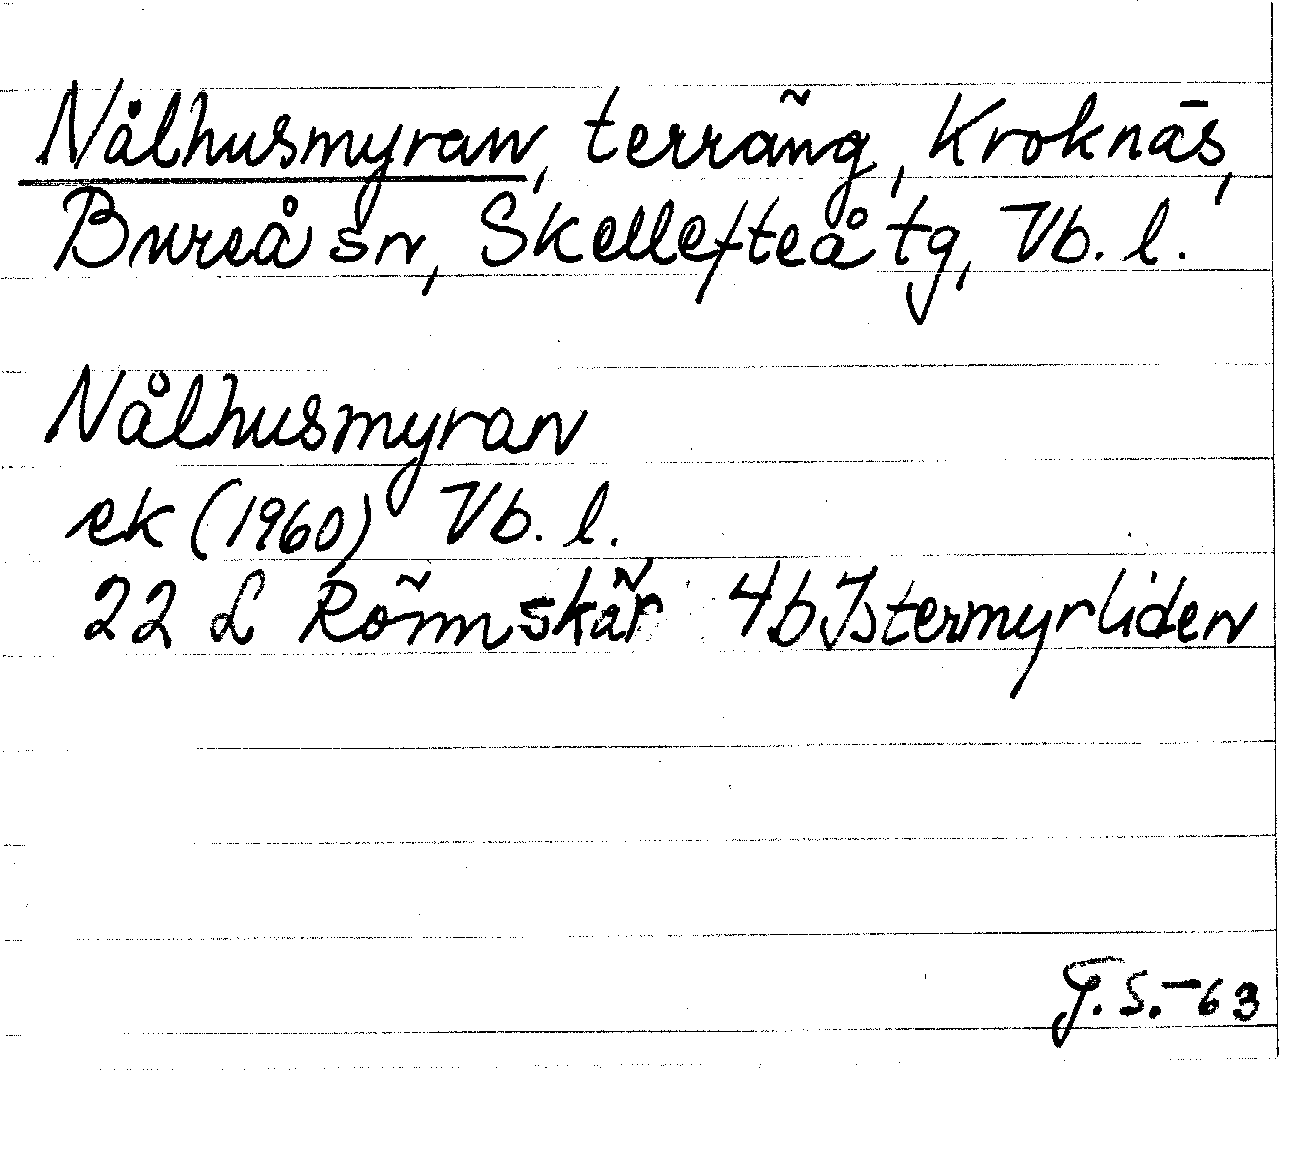 Nålhusmyran, terräng, Kroknäs,
Bureå sn, Skellefteå tg, Vb. l.
Nålhusmyran
ek (1960) Vb. l.
22 L Rönnskär 4b Istermyrliden
G. S. -63